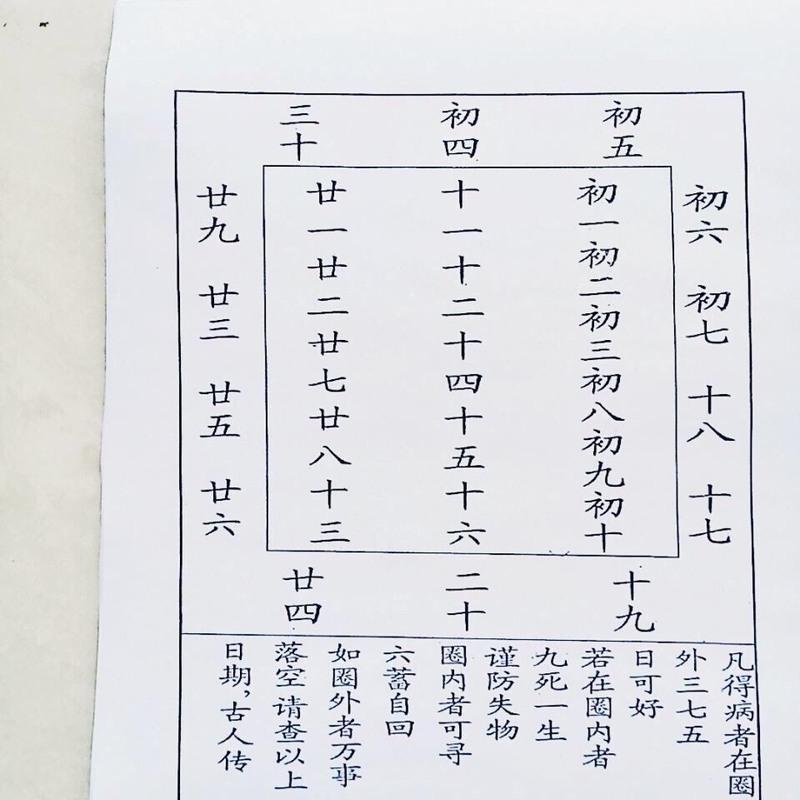 初五
初四
三十
初六 初七 十八 十七
初一初二初三初八初九初十
十一十二十四十五十六
廿一廿二廿七廿八十三
廿九 廿三 廿五 廿六
十九
二十
廿四
凡得病者在圈
外三七五
日可好
若在圈内者
九死一生
谨防失物
圈内者可寻
六蓄自回
如圈外者万事
落空请查以上
日期，古人传